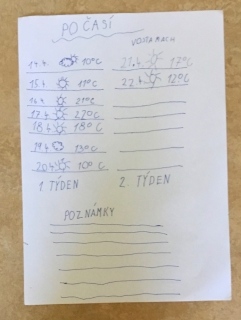 POČASÍ
14.4. 10°C
15.4 11°C
16.4 21°C
17.4 22°C
18.4 18°C
19.4 13°C
20.4 10°C
1. TÝDEN
21.4 17°C
22.4 12°C
2. TÝDEN
POZNÁMKY